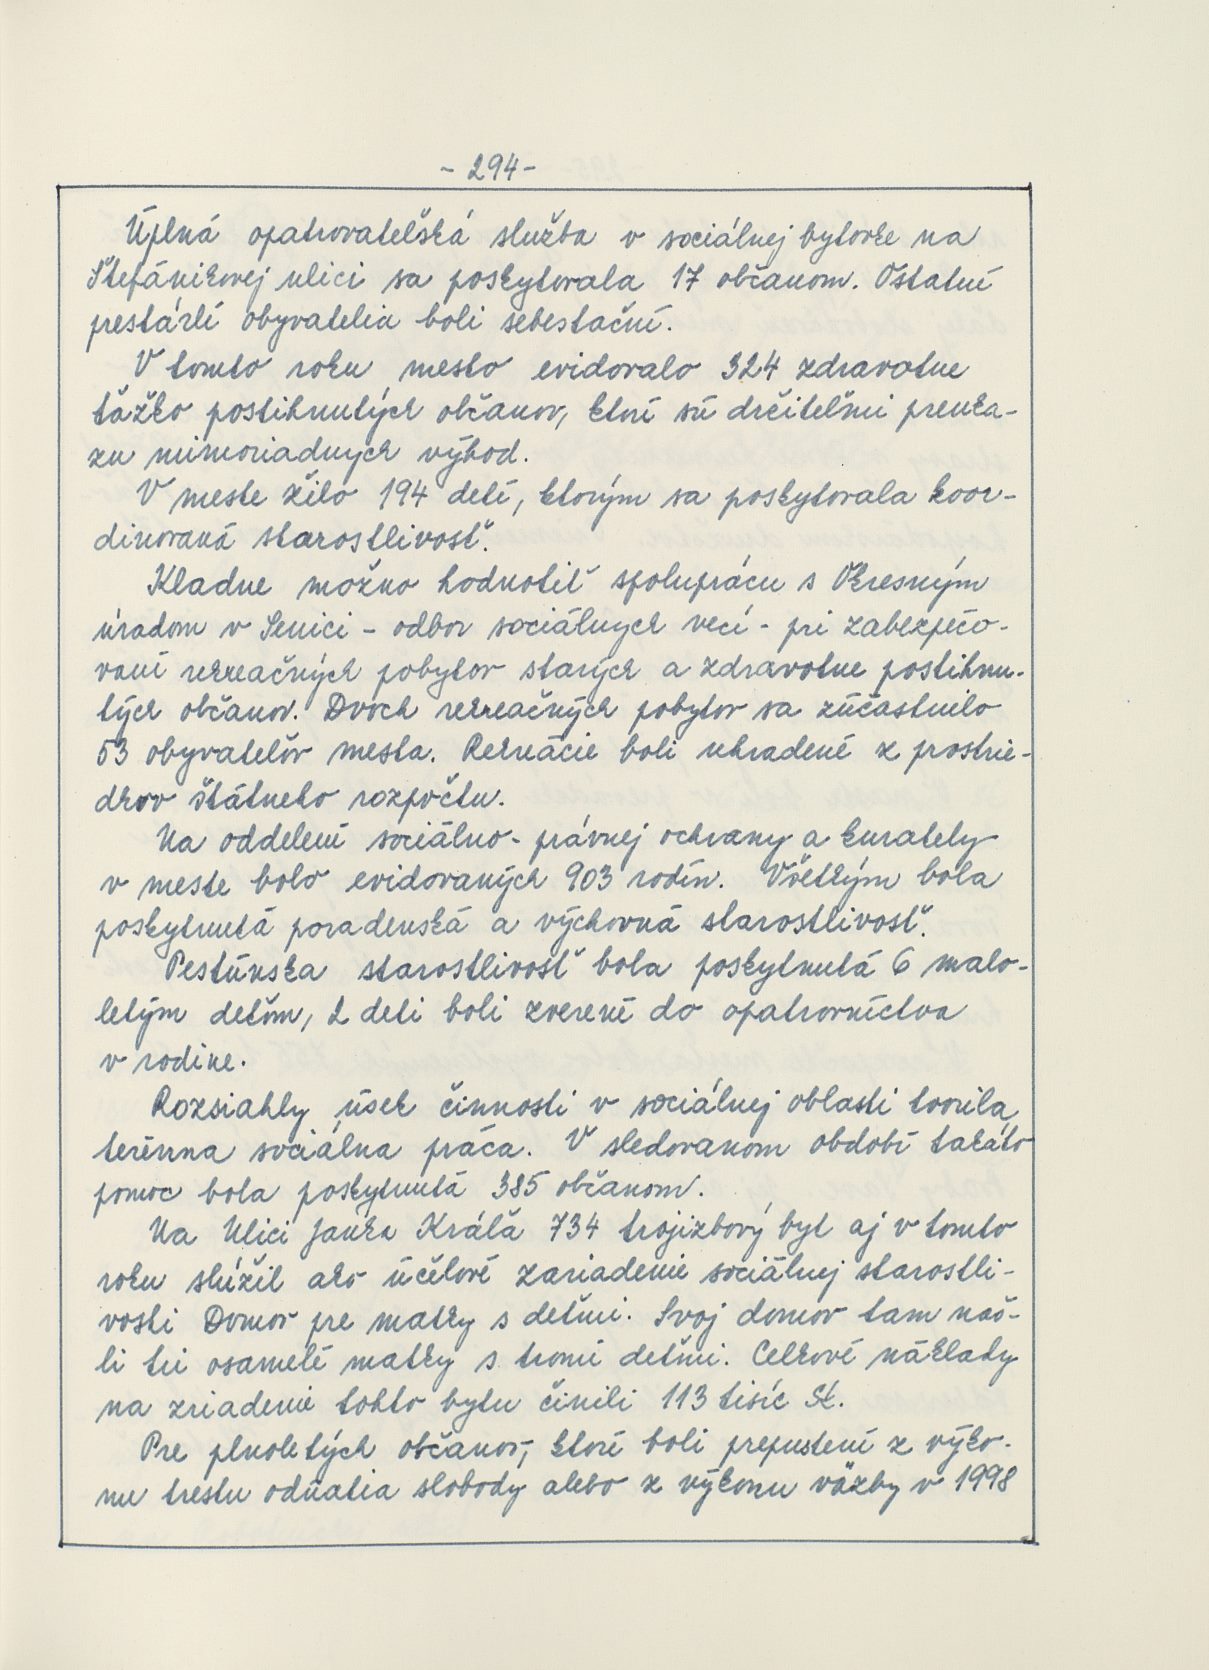 - 294 -
Úplná opatrovateľská služba v sociálnej bytovke na
Štefánikovej ulici sa poskytovala 17 občanom. Ostatní
prestárlí obyvatelia boli sebestační.
V tomto roku mesto evidovalo 324 zdravotne
ťažko postihnutých občanov, ktorí sú držiteľmi preuka-
zu mimoriadnych výhod.
V meste žilo 194 detí, ktorým sa poskytovala koor-
dinovaná starostlivosť.
Kladne možno hodnotiť spoluprácu s Okresným
úradom v Senici - odbor sociálnych vecí - pri zabezpečo-
vaní rekreačných pobytov starých a zdravotne postihnu-
tých občanov. Dvoch rekreačných pobytov sa zúčastnilo
53 obyvateľov mesta. Rekreácie boli uhradené z prostrie-
dkov štátneho rozpočtu.
Na oddelení sociálno - právnej ochrany a kurately
v meste bolo evidovaných 903 rodín. Všetkým bola
poskytnutá poradenská a výchovná starostlivosť.
Pestúnska starostlivosť bola poskytnutá 6 malo-
letým deťom, 2 deti boli zverené do opatrovníctva
v rodine.
Rozsiahly úsek činnosti v sociálnej oblasti tvorila
terénna sociálna práca. V sledovanom období takáto
pomoc bola poskytnutá 385 občanom.
Na Ulici Janka Kráľa 734 trojizbový byt aj v tomto
roku slúžil ako účelové zariadenie sociálnej starostli-
vosti Domov pre matky s deťmi. Svoj domov tam naš-
li tri osamelé matky s tromi deťmi. Celkové náklady
na zriadenie tohto bytu činili 113 tisíc Sk.
Pre plnoletých občanov, ktorí boli prepustení z výko-
nu trestu odňatia slobody alebo z výkonu väzby v 1998